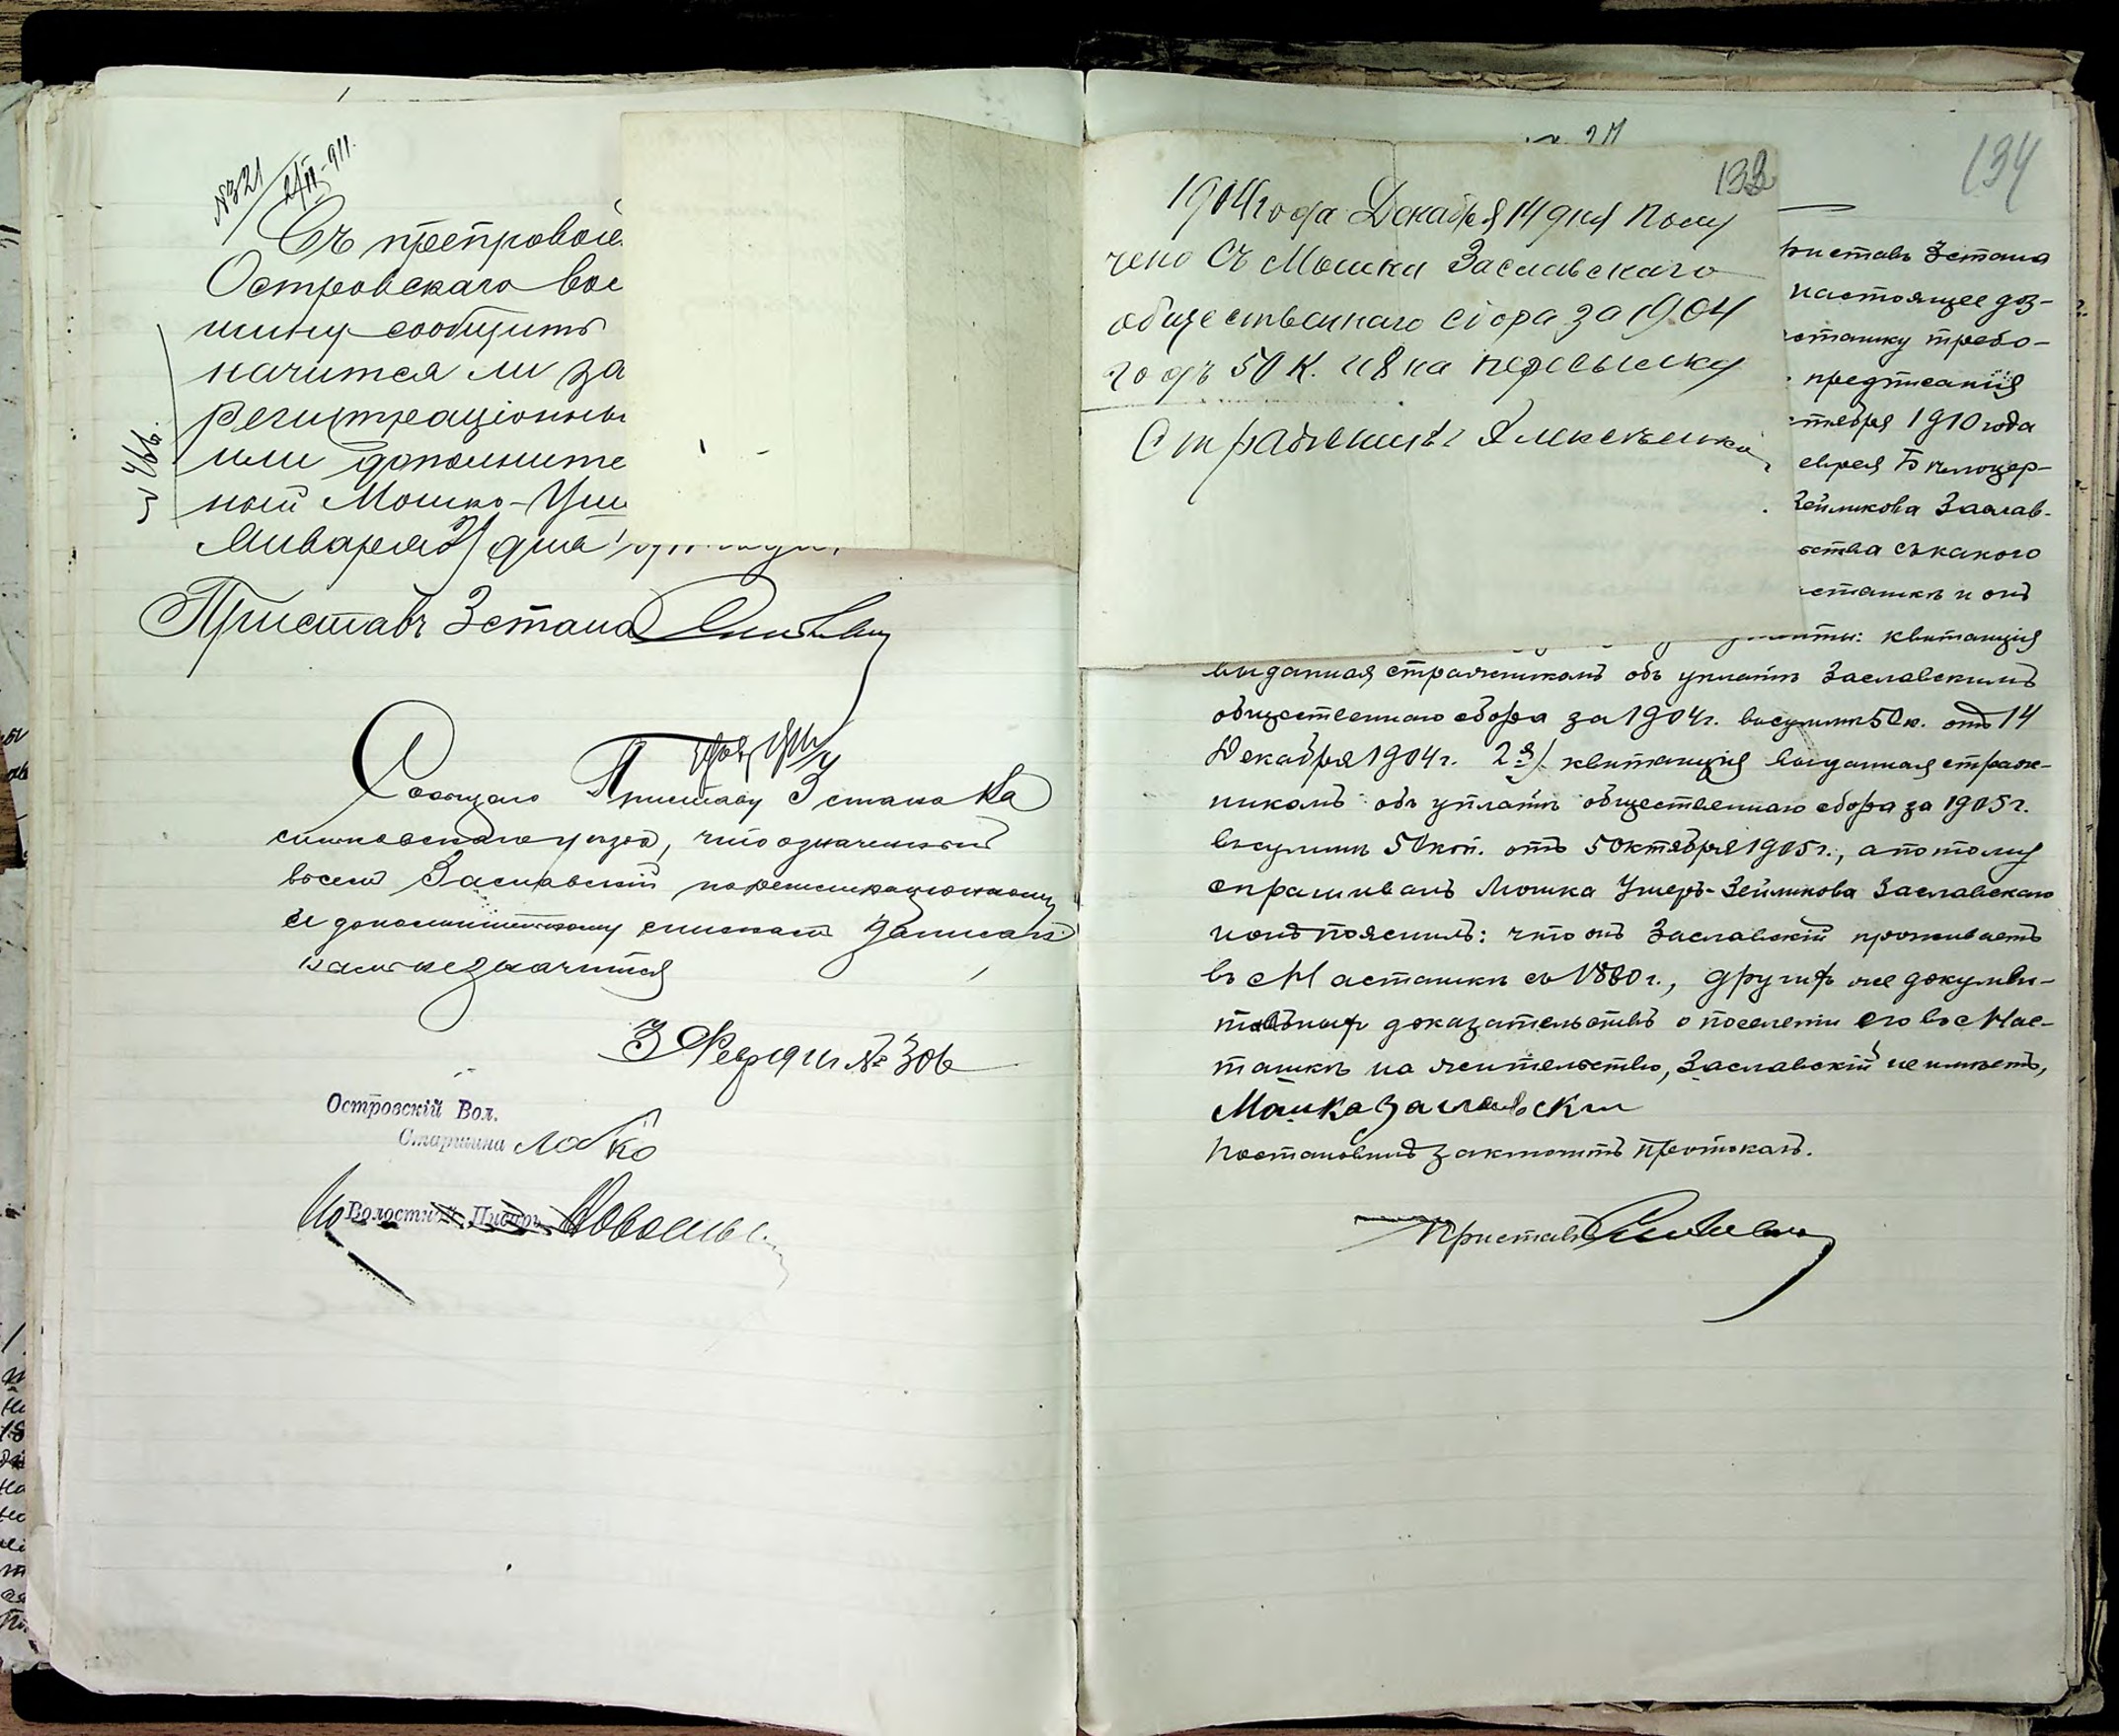 №321
2/II-911.
Съ препровож
Островскаго вол
шину сообщить
начится ли за
регистраціонны
или дополните
ный Мошко-Уше
Января 31 дня
Приставъ 3 стана
Сообщаю Приставу 3 стана Ва
сильковскаго уезда, что означенный
въ семъ Заславскій по регистраціонному
и дополнительному спискамъ записан
нымъ не значится
3 Февр 1911 № 306
Островскій Вол.
Старшина
Волостной Писарь
133
1904 года Декабря 14 дня Полу
чено Съ Мошка Заславскаго
общественнаго сбора за 1904
годъ 50 к. и 8 на пересылку
Стражникъ
134
риставъ 3 стана
настоящее доз-
сташку требо-
предписанія
тября 1910 года
еврея Бѣлоцер-
Зейликова Заслав-
ства съ какого
сташкѣ и онъ
нты: квитанція
выданная стражникомъ объ уплатѣ Заславскимъ
общественнаго сбора за 1904 г. въ суммѣ 50 к. отъ 14
Декабря 1904 г. 2я/ квитанція выданная страж-
никомъ объ уплатѣ общественнаго сбора за 1905 г.
въ суммѣ 50 коп. отъ 5 Октября 1905 г., а потому
спрашивалъ Мошка Ушеръ-Зейликова Заславскаго
и онъ пояснилъ: что онъ Заславскій проживаетъ
въ с Насташкѣ съ 1880 г., других же докумен-
тальных доказательствъ о поселеніи его въ с Нас-
ташкѣ на жительство, Заславскій не имѣетъ,
Мошка Заславски
Постановилъ заключить протоколъ.
Приставъ